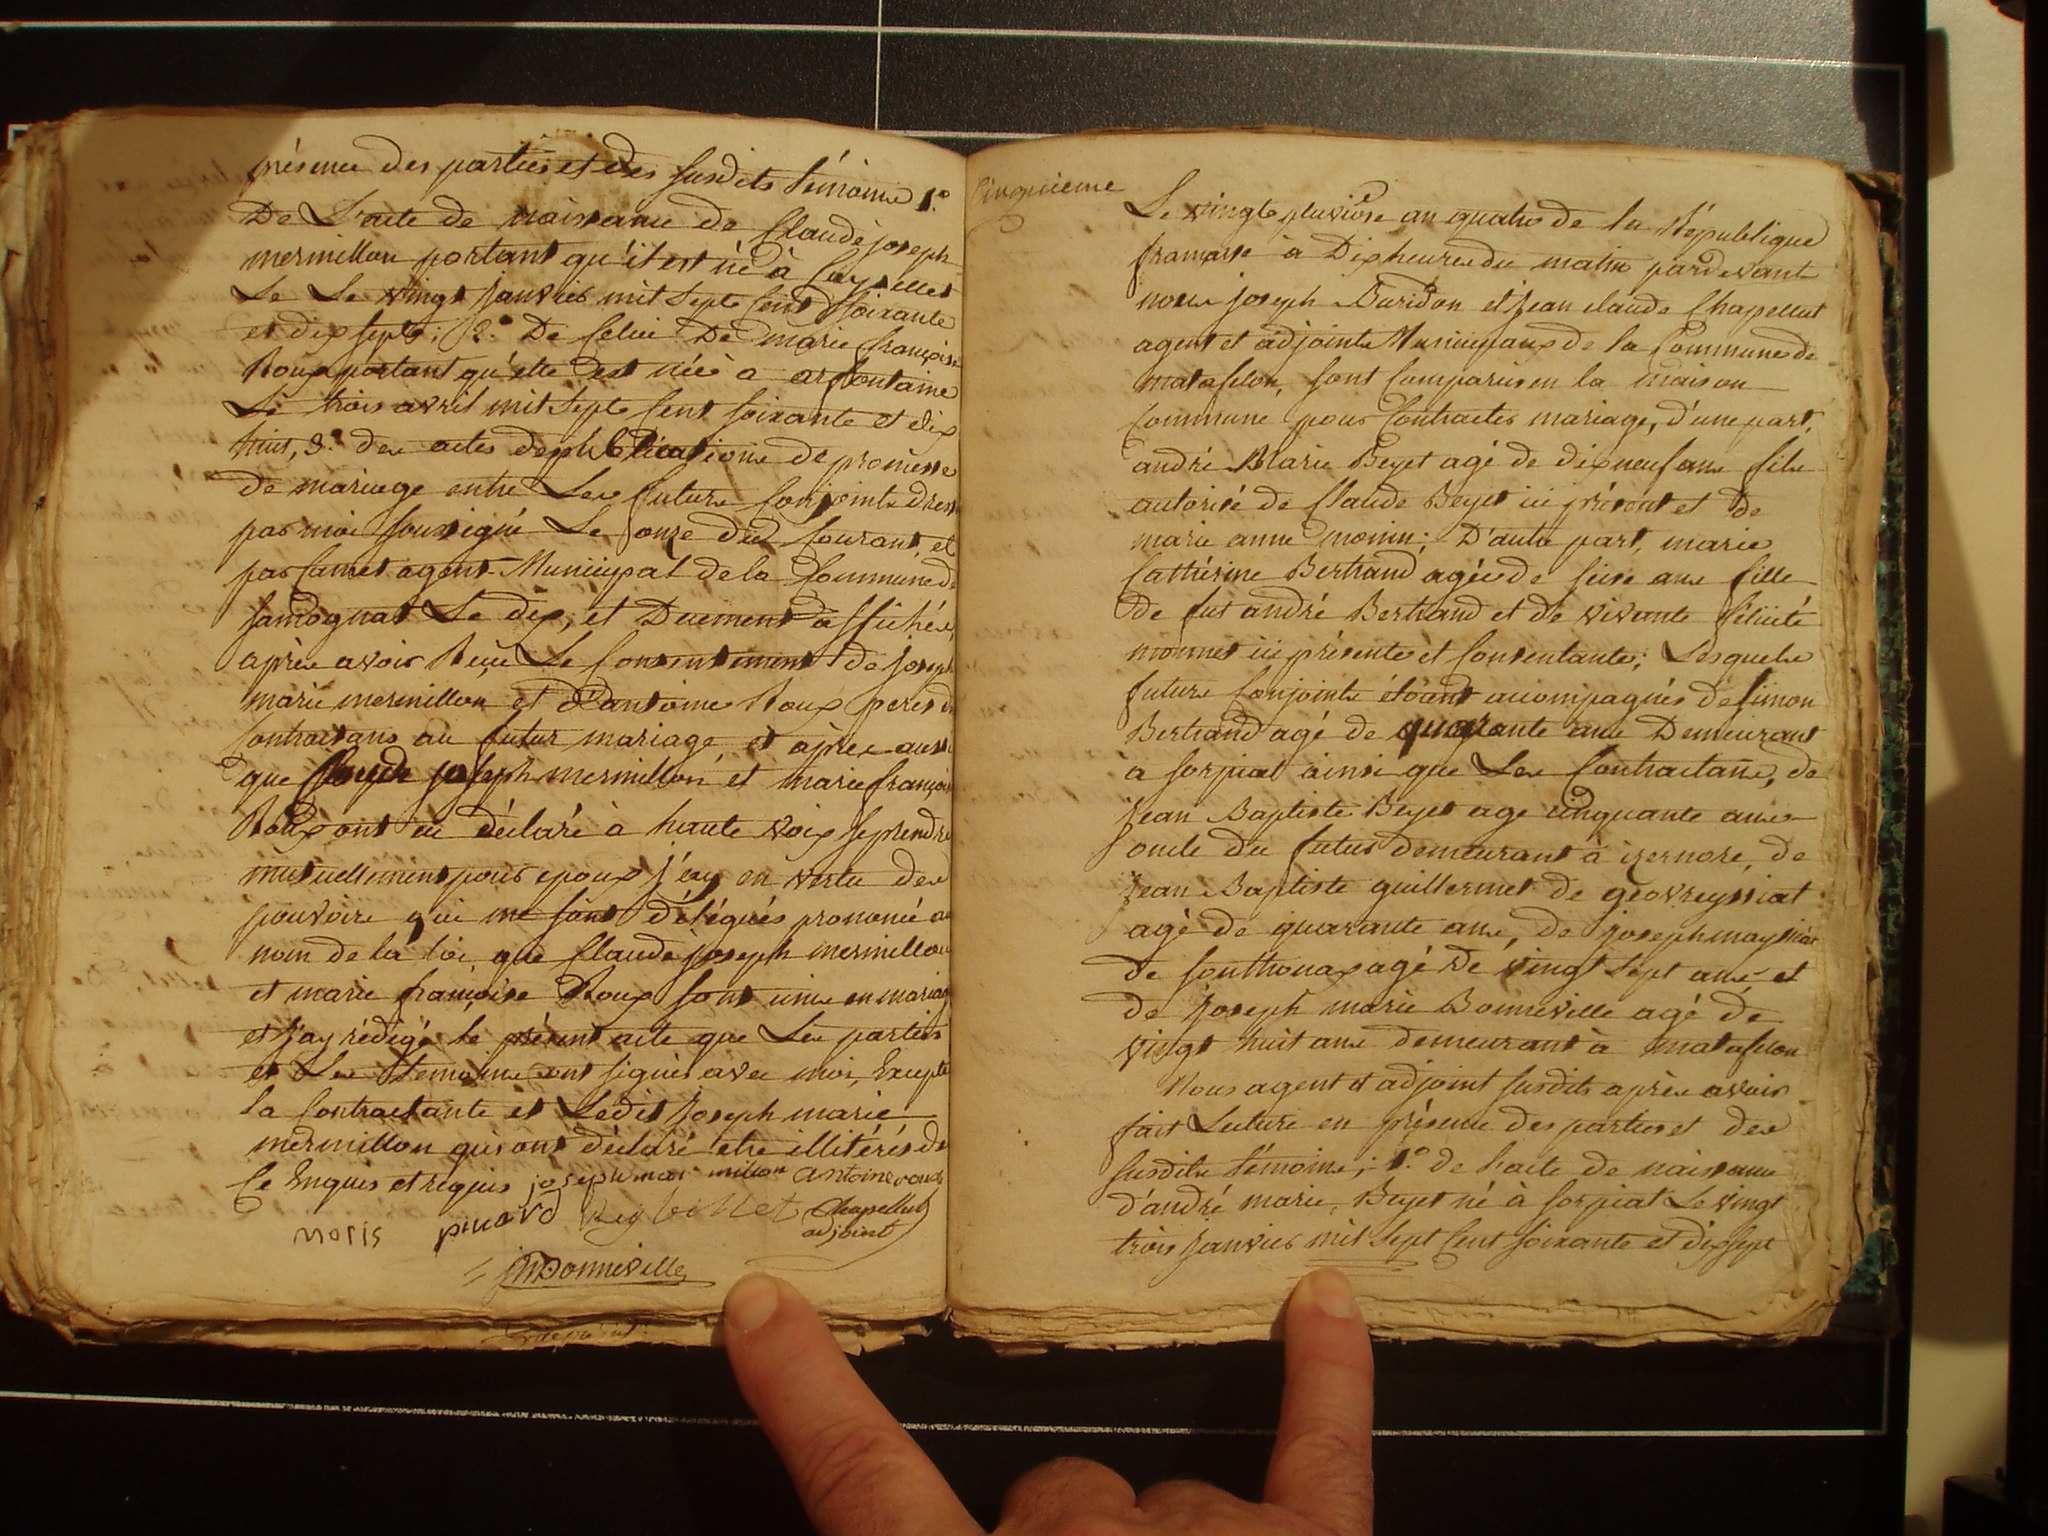 présence des parties et des susdits témoins 1.°
De L'acte de naissance de Claude joseph
mermillon portant qu'il est né à
Le Le vingt janvier mil sept Cent Soixante
et dix sept; 2.° De Celui De marie françoise
Roux portant qu'elle est née à arfontaine
Le trois avril mil sept Cent soixante et dix
huit, 3.° des actes de publications de promesse
De mariage entre Les futurs Conjoints
par moi soussigné Le onze du Courant, et
par Carret agent Municipal de la Commune de
samognat Le dix, et Duement affichés,
après avoir Reçu Le Consentement de joseph
marie mermillon et d'antoine Roux peres des
Contractans au futur mariage et après aussi
que Claude joseph mermillon et marie françoise
Roux ont eu déclaré à haute voix se prendre
mutuellement pour epoux j'ay en vertu des
pouvoirs qui me sont délégués prononcé au
nom de la loi, que Claude joseph mermillon
et marie françoise Roux sont unis en mariage
et j'ay rédigé le présent acte que Les parties
et Les Temoins ont signés avec moi, Excepté
la Contractante et Ledit joseph marie
mermillon qui ont déclaré etre illitérés de
Ce Enquis et requis joseph mar milion antoine roux
noris pinard Chapellut
adjoint
jmBonneville
Cinquieme
Le vingt pluviôse an quatre de la République
françaisse à Dix heures du matin pardevant
nous joseph Buridon et jean claude Chapellut
agent et adjoint Municipaux de la Commune de
matafelon, sont Comparus en la maison
Commune pour Contracter mariage, d'une part,
andré Marie Beyet agé de dix neuf ans fils
autorisé de Claude Beyet ici présent et De
marie anne monin; D'autre part, marie
Cathérine Bertrand agée de seise ans fille
De fut andré Bertrand et de vivante féliicité
monnet ici présente et Consentante; Lesquels
futurs Conjoints étoant accompagnés de simon
Bertrand agé de quarante ans Demeurant
à sorpiat ainsi que Les Contractans, de
jean Baptiste Beyet agé cinquante ans
oncle du futur demeurant à izernore, de
jean Baptiste guillermet de geovreyssiat
agé de quarante ans, de joseph
de sonthonax agé de vingt sept ans, et
de joseph marie Bonneville agé de
vingt huit ans demeurant à matafelon
Nous agent et adjoint susdits après avoir
fait Lecture en présence des parties et des
susdits témoins; 1.° de l'acte de naissance
d'andré marie, Beyet né à sorpiat Le vingt
trois janvier mil sept Cent soixante et dix sept